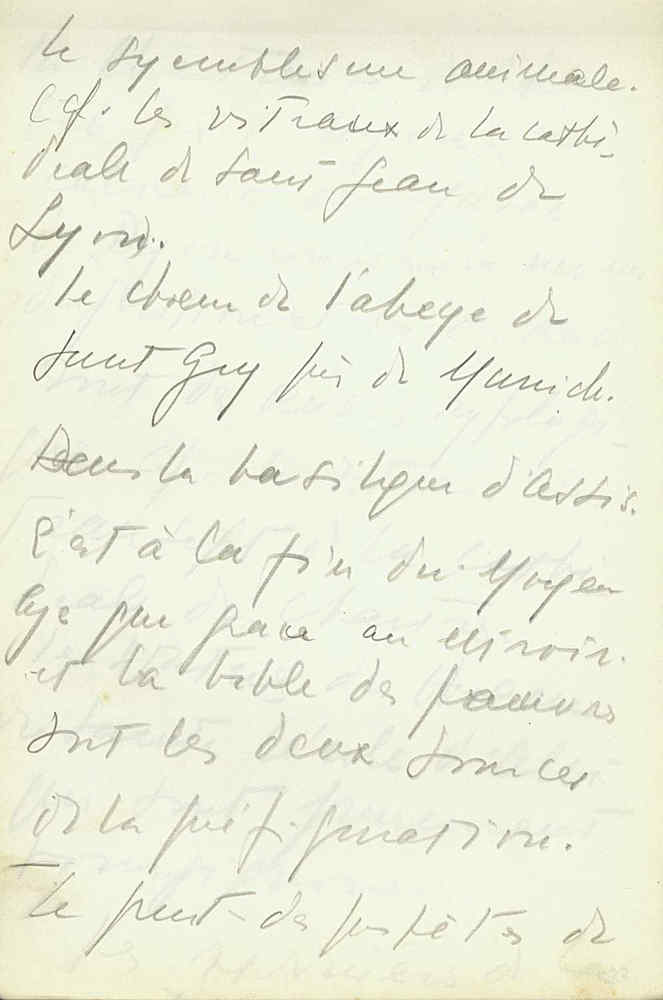 le symbolisme animale.
Cf. les vitraux de la cathé-
drale de Saint Jean de
Lyon.
Le choeur de l'abeye de
Saint Guy près de Munich.
Dans la basilique d'Assis.
C'est à la fin du Moyen
Age que grace au miroir
et la bible des pauvres
sont les deux sources
de la préfiguration.
Le des prophètes de